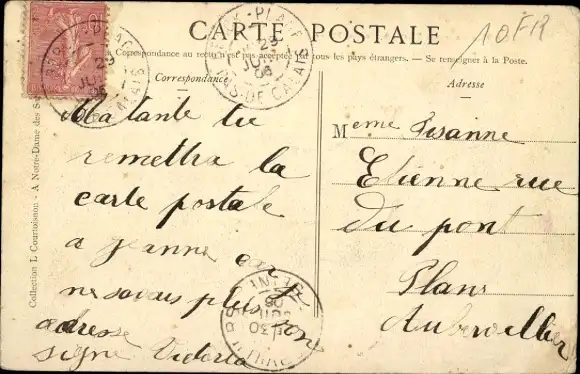 CARTE POSTALE
10 FR
Correspondance au recto n'est pas acceptée par tous les pays étrangers. — Se renseigner à la Poste.
Correspondance
Adresse
Ma tante tu
remettra la
carte postale
a jeanne
ne savais plus son
adresse
signe Victoria
Meme Susanne
Etienne rue
Du pont
Plans
Aubervillier
Collection L Courtoisnon - A Notre-Dame des
PAS-DE-CALAIS
29